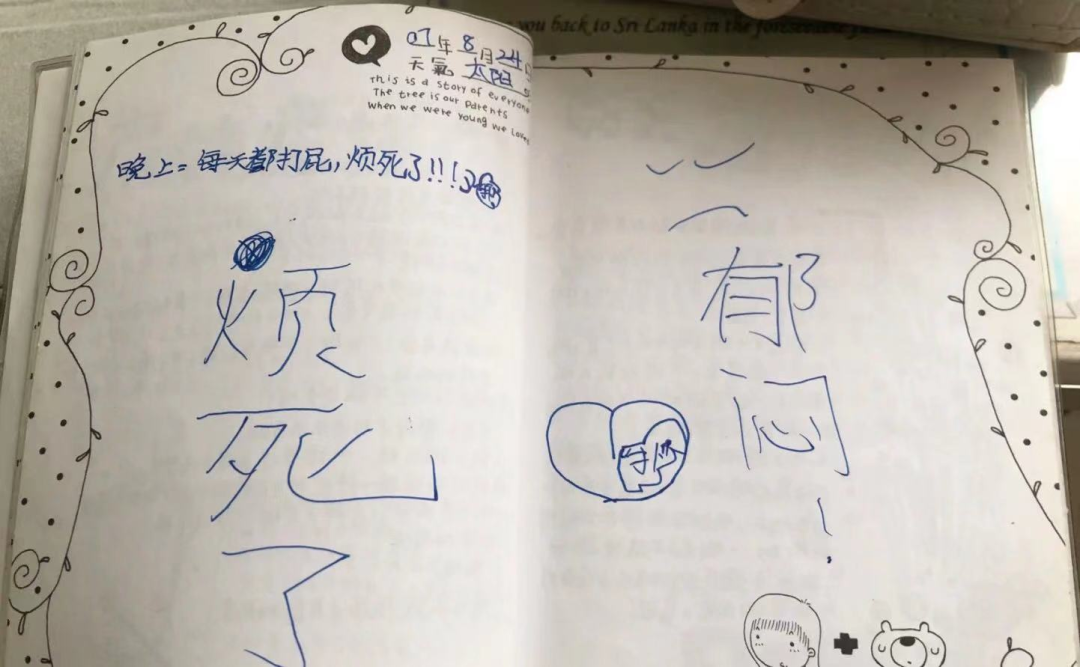 you back to Sri Lanka in the
01年8月24日
天氣 太阳
This is a story of everyone
The tree is our parents
When we were young we loved
晚上：每天都打屁，烦死了!!!
烦
死
了
郁
闷
!